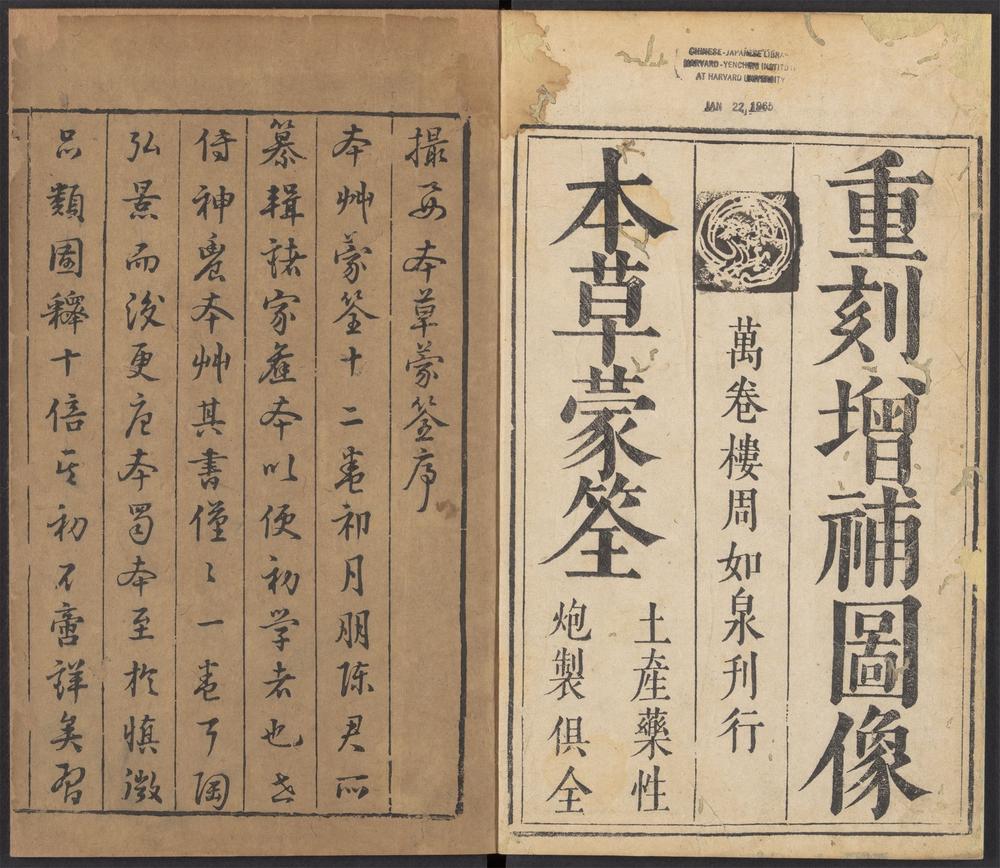 CHINESE-JAPANESE LIBRARY
HARVARD-YENCHING INSTITUTE
AT HARVARD UNIVERSITY
JAN 22 1965
重刻增補圖像
萬卷樓周如泉刊行
本草蒙筌
土產藥性
炮製俱全
撮要本草蒙筌序
本艸蒙筌十二卷祁月朋陈君所
纂輯諸家舊本以便初学者也世
傳神農本艸其書僅〻一卷耳陶
弘景而後更唐本蜀本至於慎微
品類圖釋十倍其初不啻詳矣習